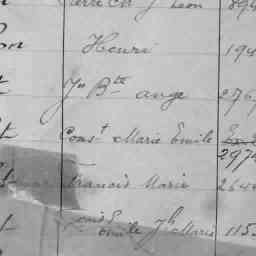 Pierre Ch J Léon 894
on Henri 194
t Jn Bte ange 276
t Const Marie Emile
2974
François Marie 264
t Emile Jh Marie 115